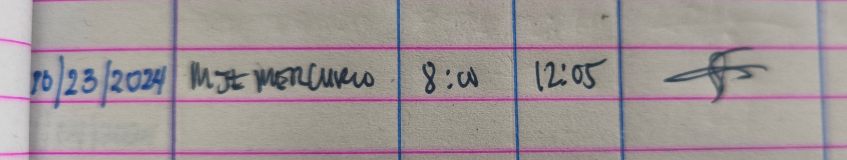 10/23/2024 MJE MERCURIO 8:00 12:05